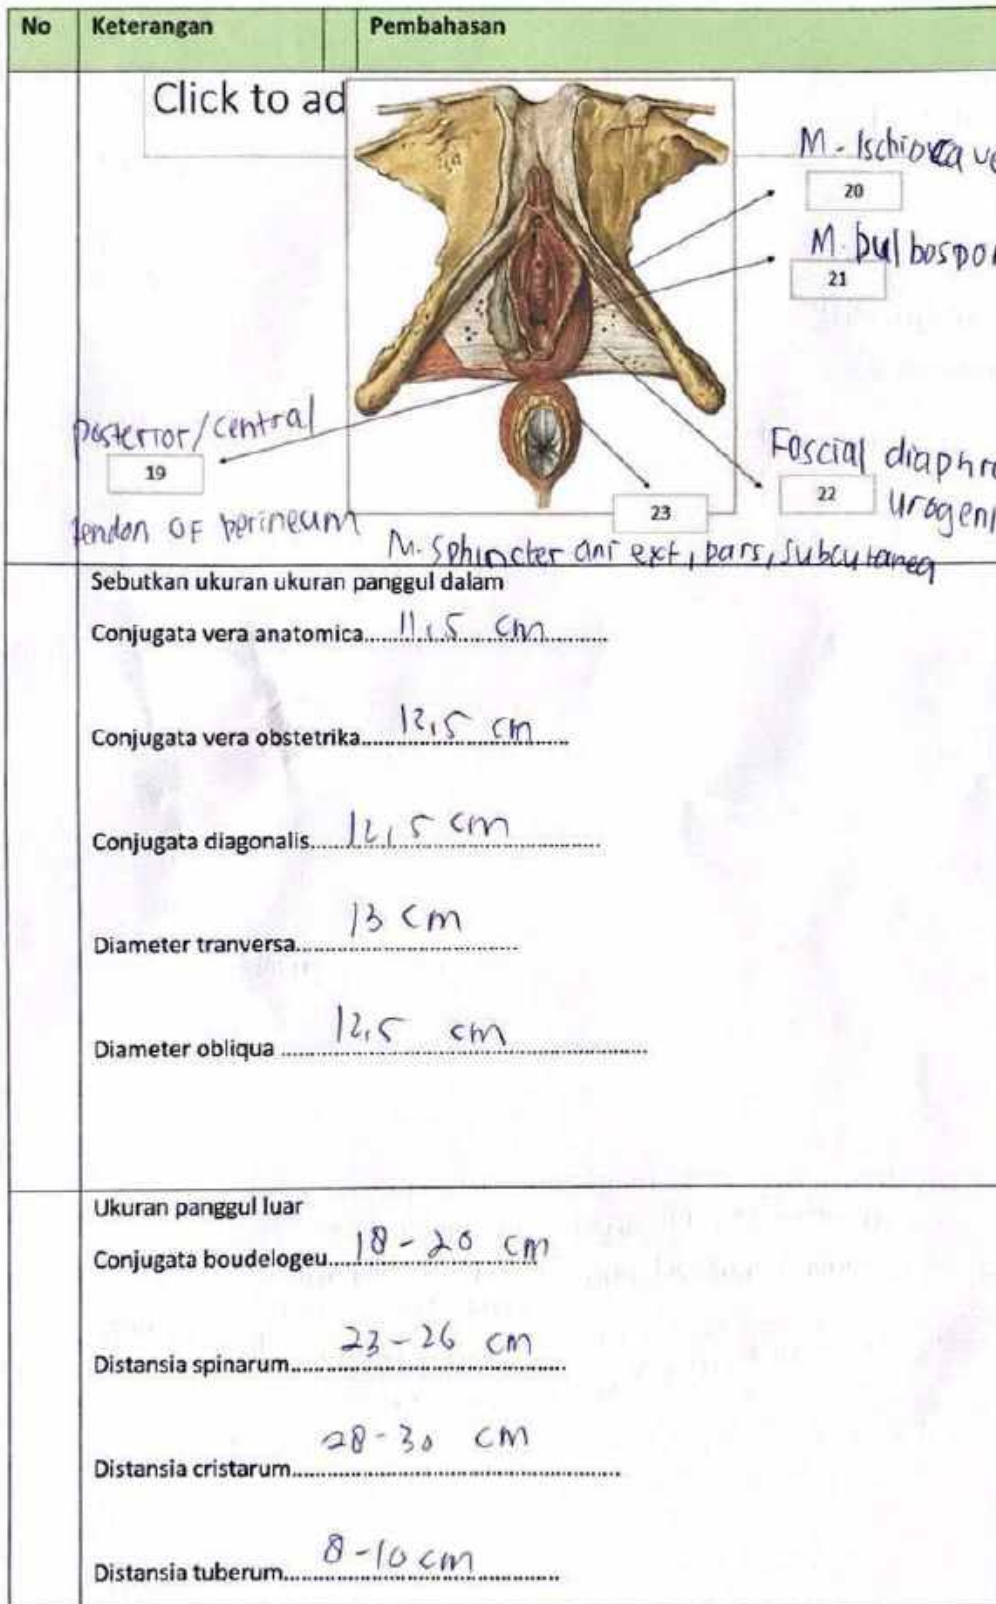 No Keterangan Pembahasan
Click to ad
M. Ischioca
20
M. bulbospo
21
posterior/central
19
tendon OF perineum
Fascial diaphr
22 urogen
23
M. Sphincter ani ext, pars, subcutanea
Sebutkan ukuran ukuran panggul dalam
Conjugata vera anatomica......11,5 cm......
Conjugata vera obstetrika......12,5 cm......
Conjugata diagonalis......12,5 cm......
Diameter tranversa......13 cm......
Diameter obliqua ......12,5 cm......
Ukuran panggul luar
Conjugata boudelogeu......18-20 cm......
Distansia spinarum......23-26 cm......
Distansia cristarum......28-30 cm......
Distansia tuberum......8-10 cm......